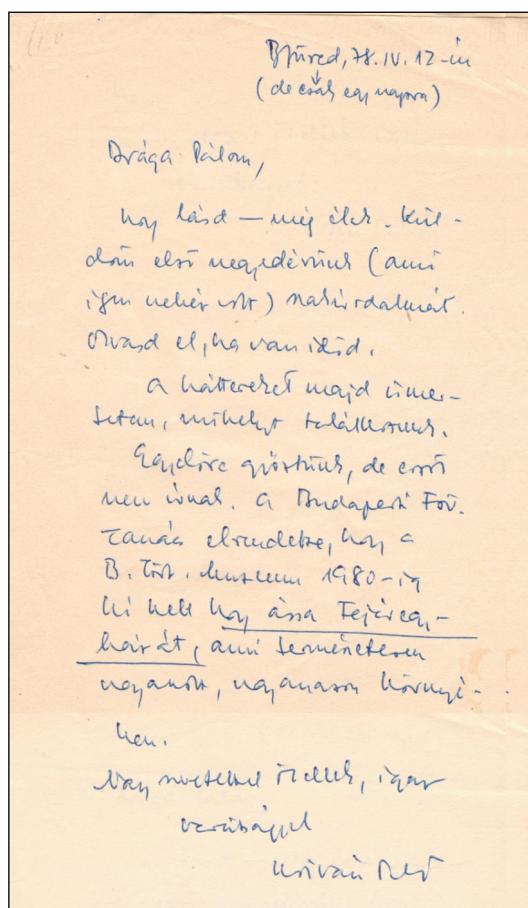 Bfüred, 78. IV. 12-én
(de csak egy napra)
Drága Pálom,
hogy lásd – még élek. Kül-
döm első negyedévünk (ami
igen nehéz volt) szakirodalmát.
Olvasd el, ha van időd.
A háttereket majd ismer-
tetem, mihelyt találkozunk.
Egyelőre győztünk, de erről
nem írnak. A Budapesti Főv.
Tanács elrendelte, hogy a
B. Tört. Múzeum 1980-ig
ki kell hogy ássa Fejéregy-
házát, ami természetesen
ugyanott, ugyanazon környé-
ken.
Nagy szeretettel ölellek, igaz
barátsággal